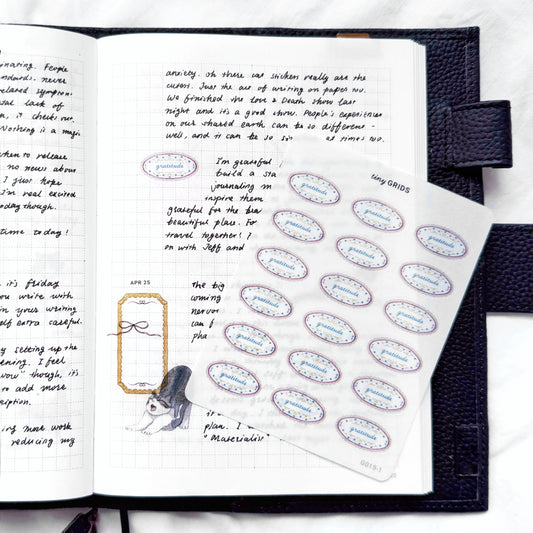 onating. People
never
related symptom
total lack of
it checks our
Nothing is a magic
when to release
no news about
I just hope
I'm real excited
today though.
time today!
it's friday
you write with
in your writing
extra careful.
by setting up the
evening. I feel
wow" though, it's
to add more
ription.
ing more work
reducing my
anxiety. oh these cat stickers really are the
cutest. Just the act of writing on paper too.
We finished the Love & Death show last
night and it's a good show. People's experiences
on our shared earth can be so different -
well, and it can be so si at times too.
gratitude
I'm grateful
build a sta
journaling m
inspire them
grateful for the bra
beautiful place. For
travel together! I
on with Jeff and
APR 25
The big
coming
nervou
can f
pha
plan. I
"Materialis
tiny GRIDS
gratitude
gratitude
gratitude
gratitude
gratitude
gratitude
gratitude
gratitude
gratitude
gratitude
gratitude
gratitude
gratitude
gratitude
gratitude
gratitude
gratitude
gratitude
G015-1